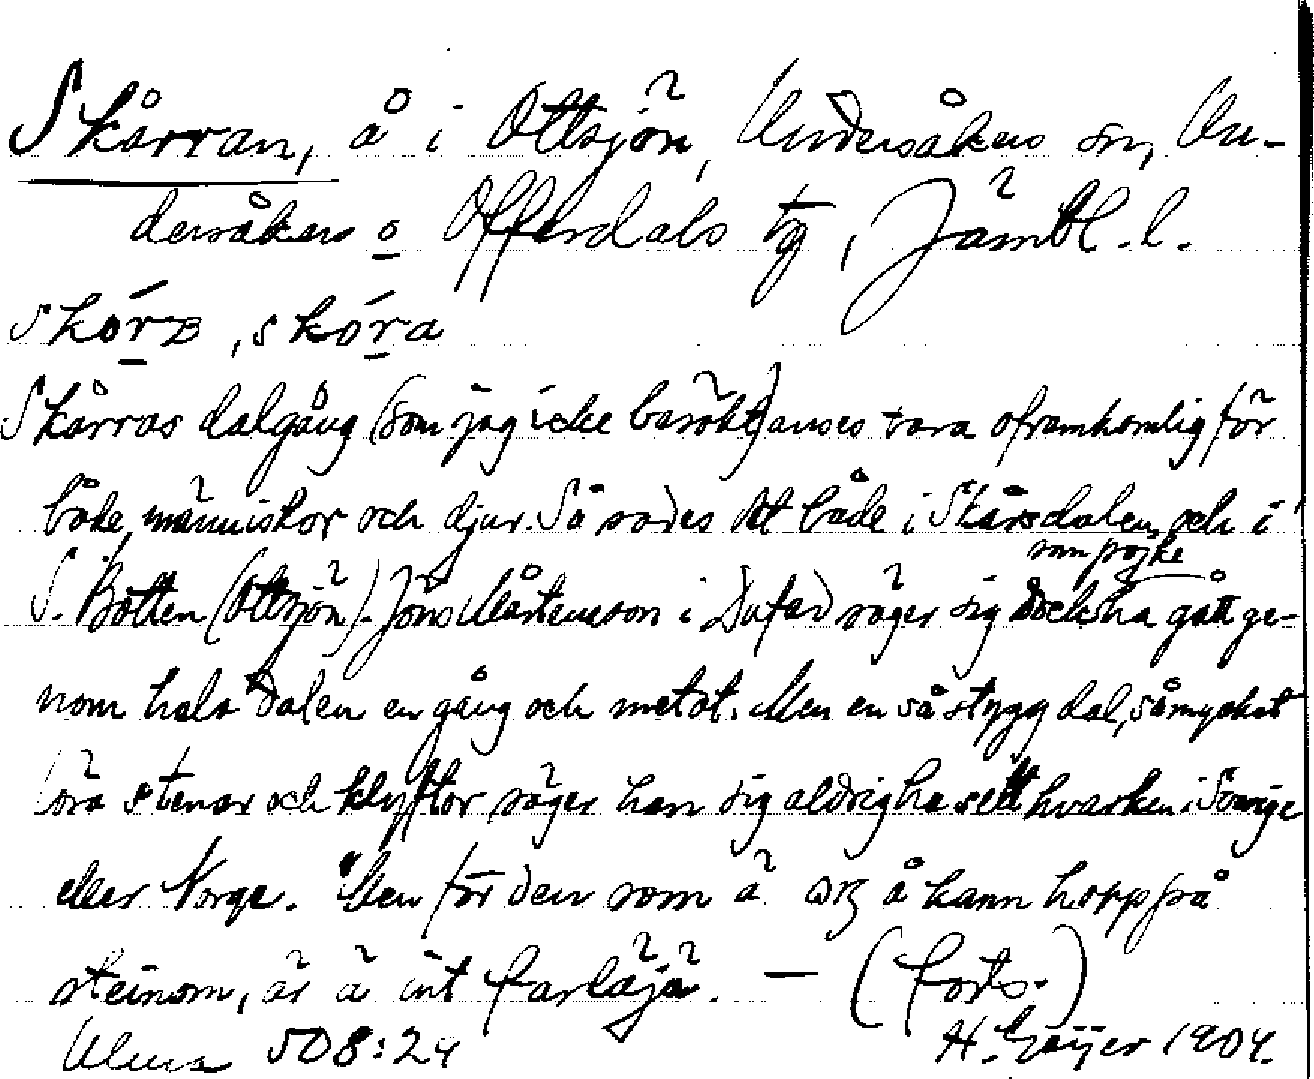 Skårran, å i Ottsjön, Undersåkers sn, Un-
dersåkers o Offerdals tg, Jämtl. l.
skóra
Skårras dalgång (som jag icke besökt) anses vara oframkomlig för
både människor och djur. Så sades det både i Skårsdalen och i
som pojke
S. Botten (Ottsjön). Jöns Mårtensson i Dufed säger sig dock ha gått ge-
nom hela dalen en gång och metat. Men en så stygg dal, så mycket
stenar och klyftor säger han sig aldrig ha sett hvarken i Sverige
eller Norge. "Men för den som ä å kann hopp på
steinom, är ä int farläjä. — (forts.)
Ulma 508:24 H. Geijer 1904.